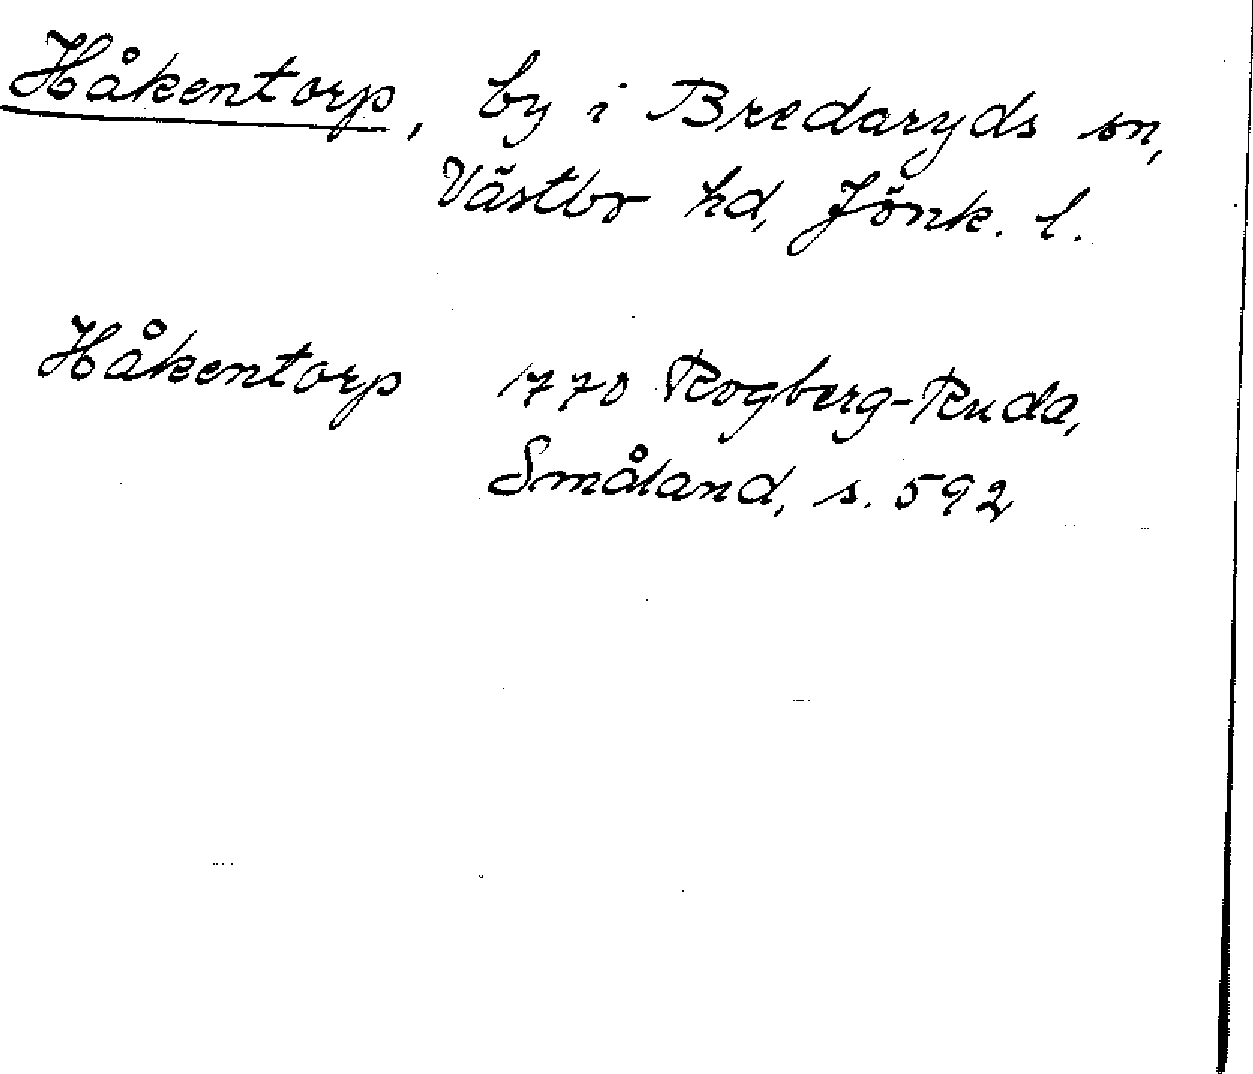 Håkentorp, by i Bredaryds sn,
Västbo hd, Jönk. l.
Håkentorp 1770 Rogberg-Ruda,
Småland, s. 592